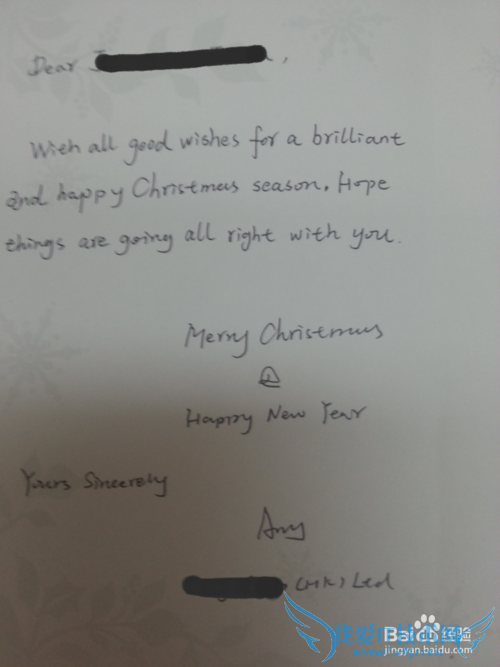 Dear
With all good wishes for a brilliant
and happy Christmas season. Hope
things are going all right with you.
Merry Christmas
&
Happy New Year
Yours Sincerely
Amy
(HK) Ltd
Baidu 经验
jingyan.baidu.com